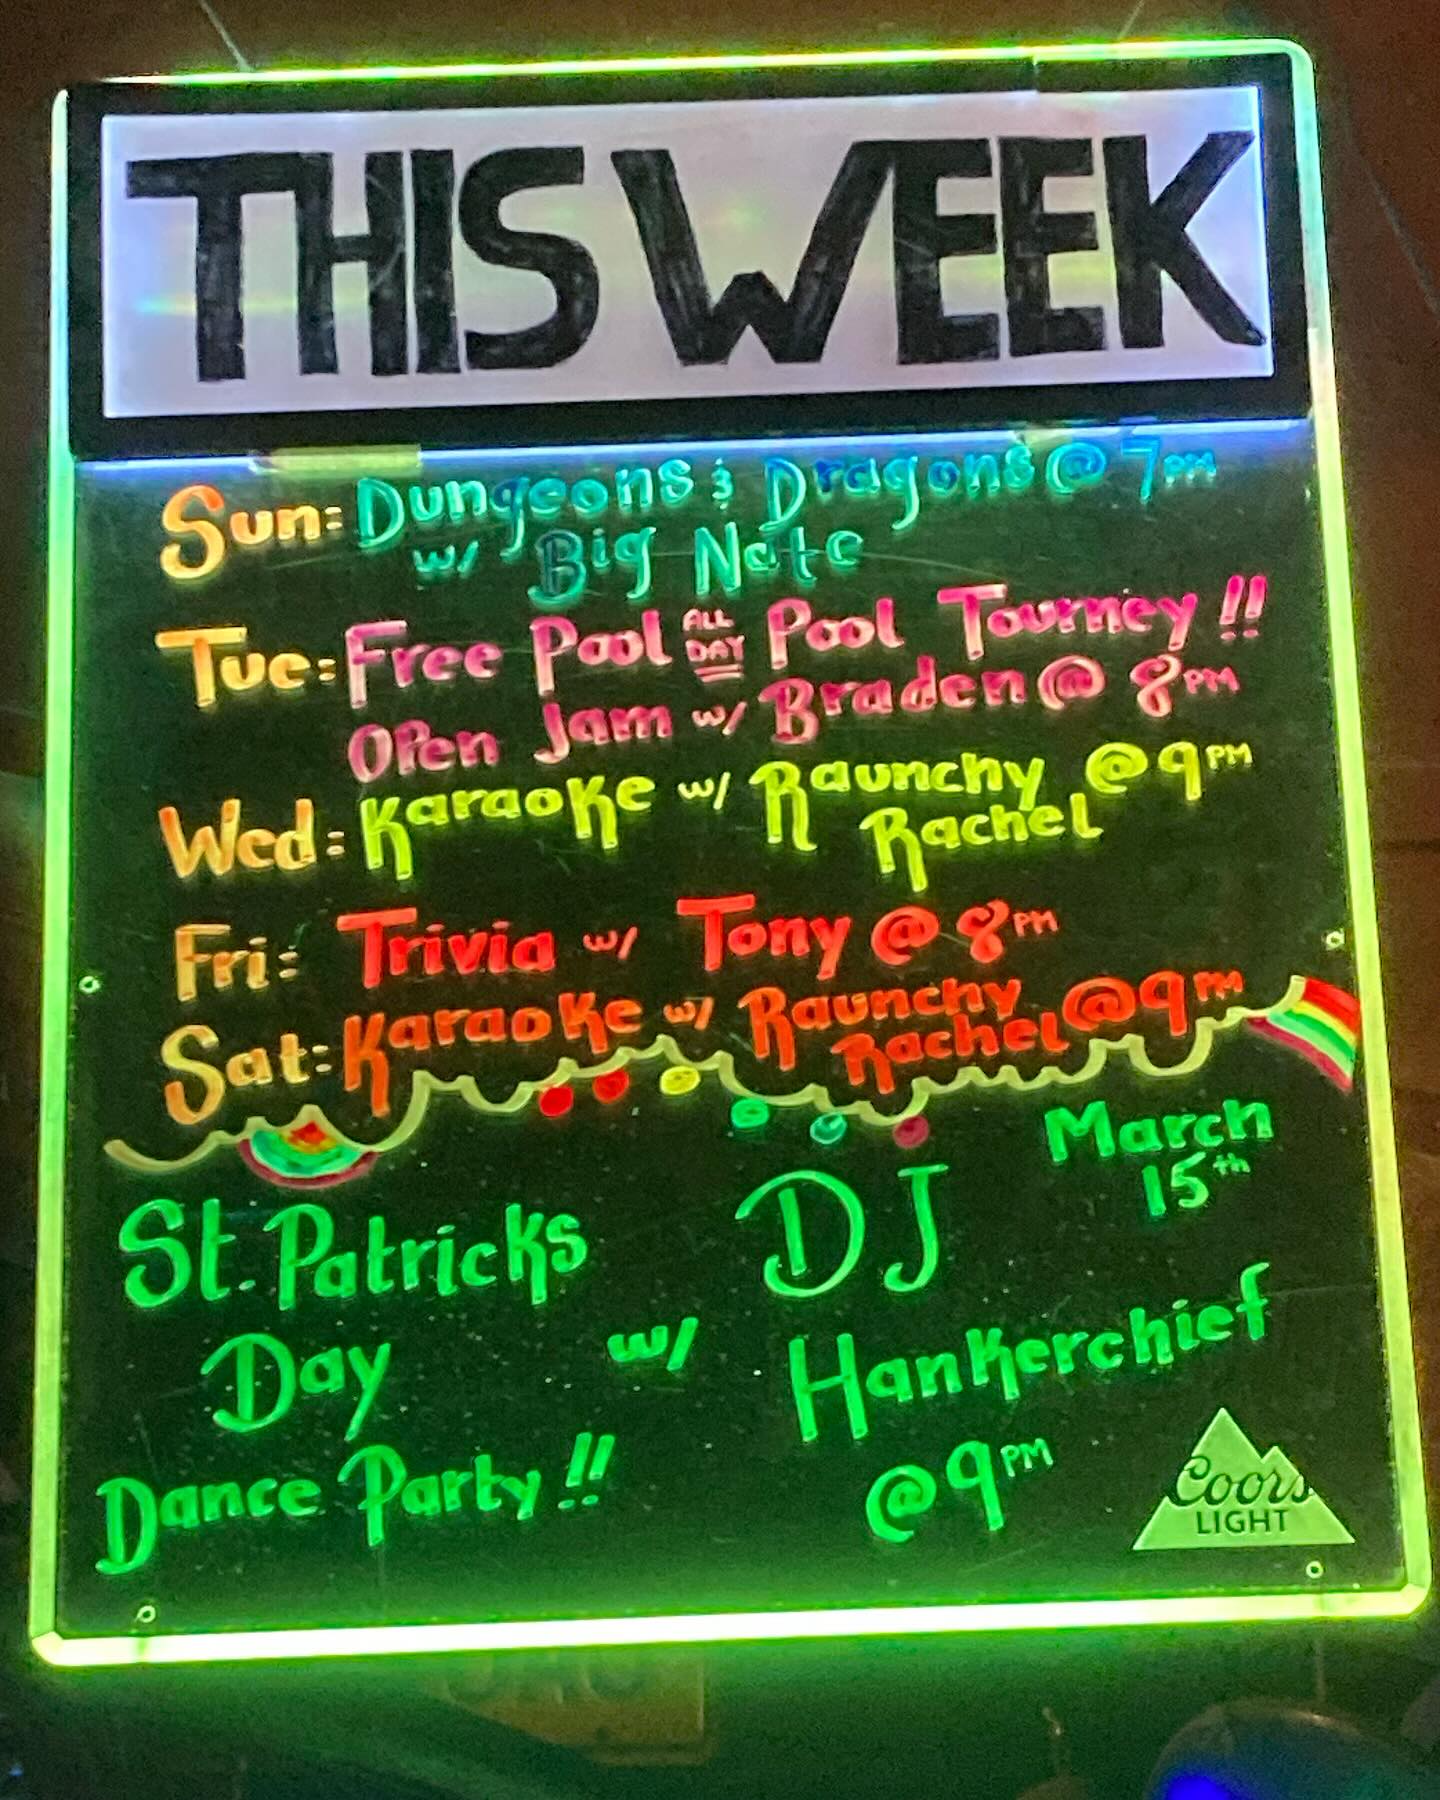 THIS WEEK
Sun: Dungeons & Dragons @ 7PM
w/ Big Nate
Tue: Free Pool ALL DAY Pool Tourney!!
Open Jam w/ Braden @ 8PM
Wed: Karaoke w/ Raunchy @ 9PM
Rachel
Fri: Trivia w/ Tony @ 8PM
Sat: Karaoke w/ Raunchy @ 9PM
Rachel
March
15th
St. Patricks
Day
Dance Party!!
w/
DJ
Hankerchief
@ 9PM
Coors
LIGHT